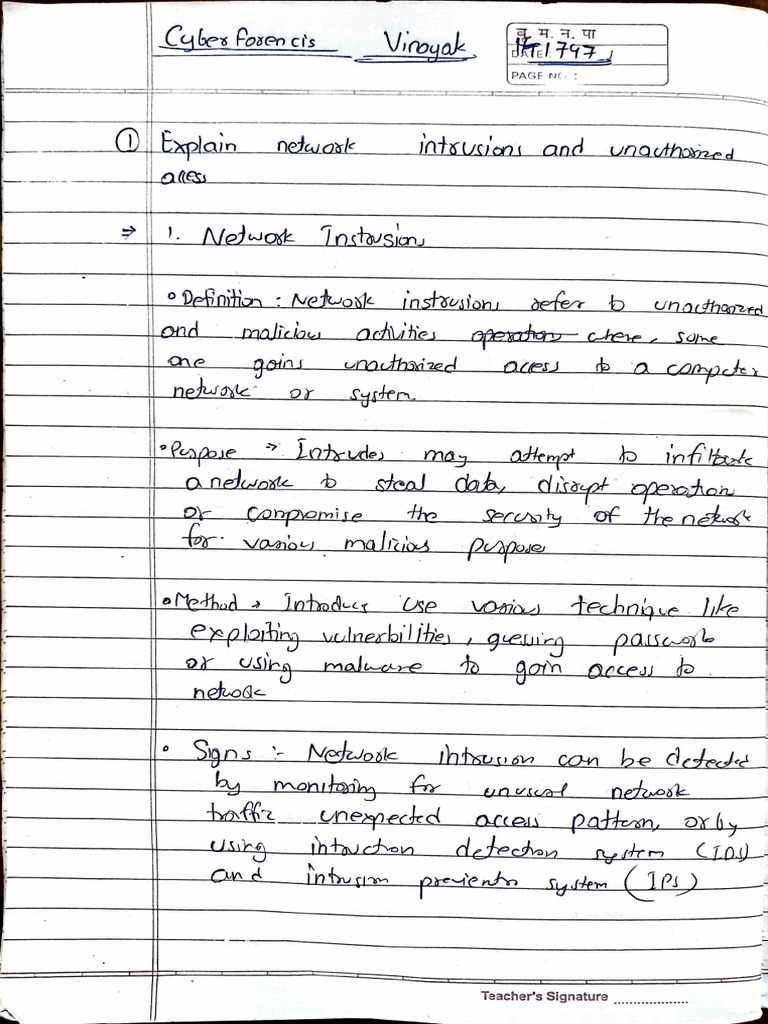 Cyber forencis Vinayak
बु. म. न. पा
DATE:
171797
PAGE NO :
① Explain network intrusions and unauthorized
acess
⇒ 1. Network Instrusion
• Definition : Network instrusions refer to unauthorized
and malicious activities operation where, some
one gains unauthorized access to a computer
network or system
• Purpose → Intrudes may attempt to infiltrate
a network to steal data, disrupt operation
or compromise the security of the network
for various malicious purpose
• Method → Introducs use various technique like
exploiting vulnerbilities, guessing password
or using malware to gain access to
network
• Signs :- Network intrusion can be detected
by monitoring for unusual network
traffic unexpected access pattern, or by
using intruction detection system (IDS)
and intrusion previentn system (IPS)
Teacher's Signature ..................